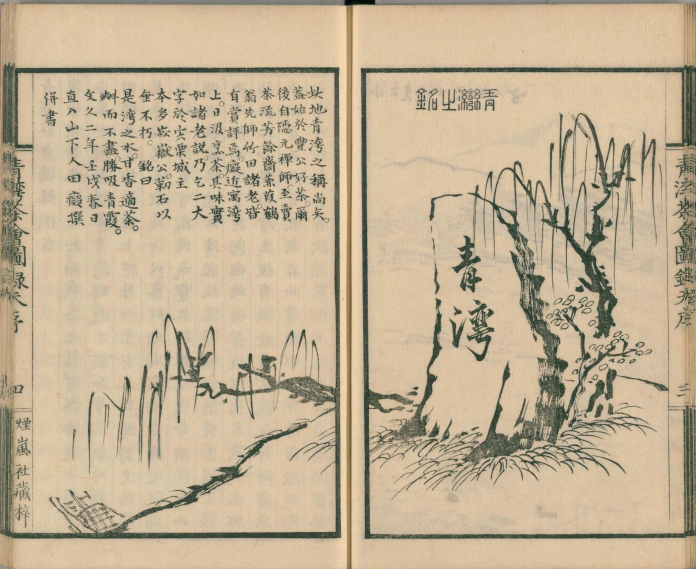 青灣之銘
青灣
青灣茶會圖錄
三
此地青湾之稱尚矣。
蓋始於豐公好茶爾
後自隱元禪師至賣
茶流芳餘齋蒹葭鶴
翁先師竹田諸老皆
有賞評爲癡近寓湾
上日汲烹茶其味實
如諸老説乃乞二大
字於宍粟城主
本多嶽公勒石以
垂不朽。銘曰
是湾之水。甘香適茶。
斟而不盡勝吸青霞。
文久二年壬戌春日
直入山下人田癡撰
併書
青灣茶會圖錄
四
煙嵐社藏梓